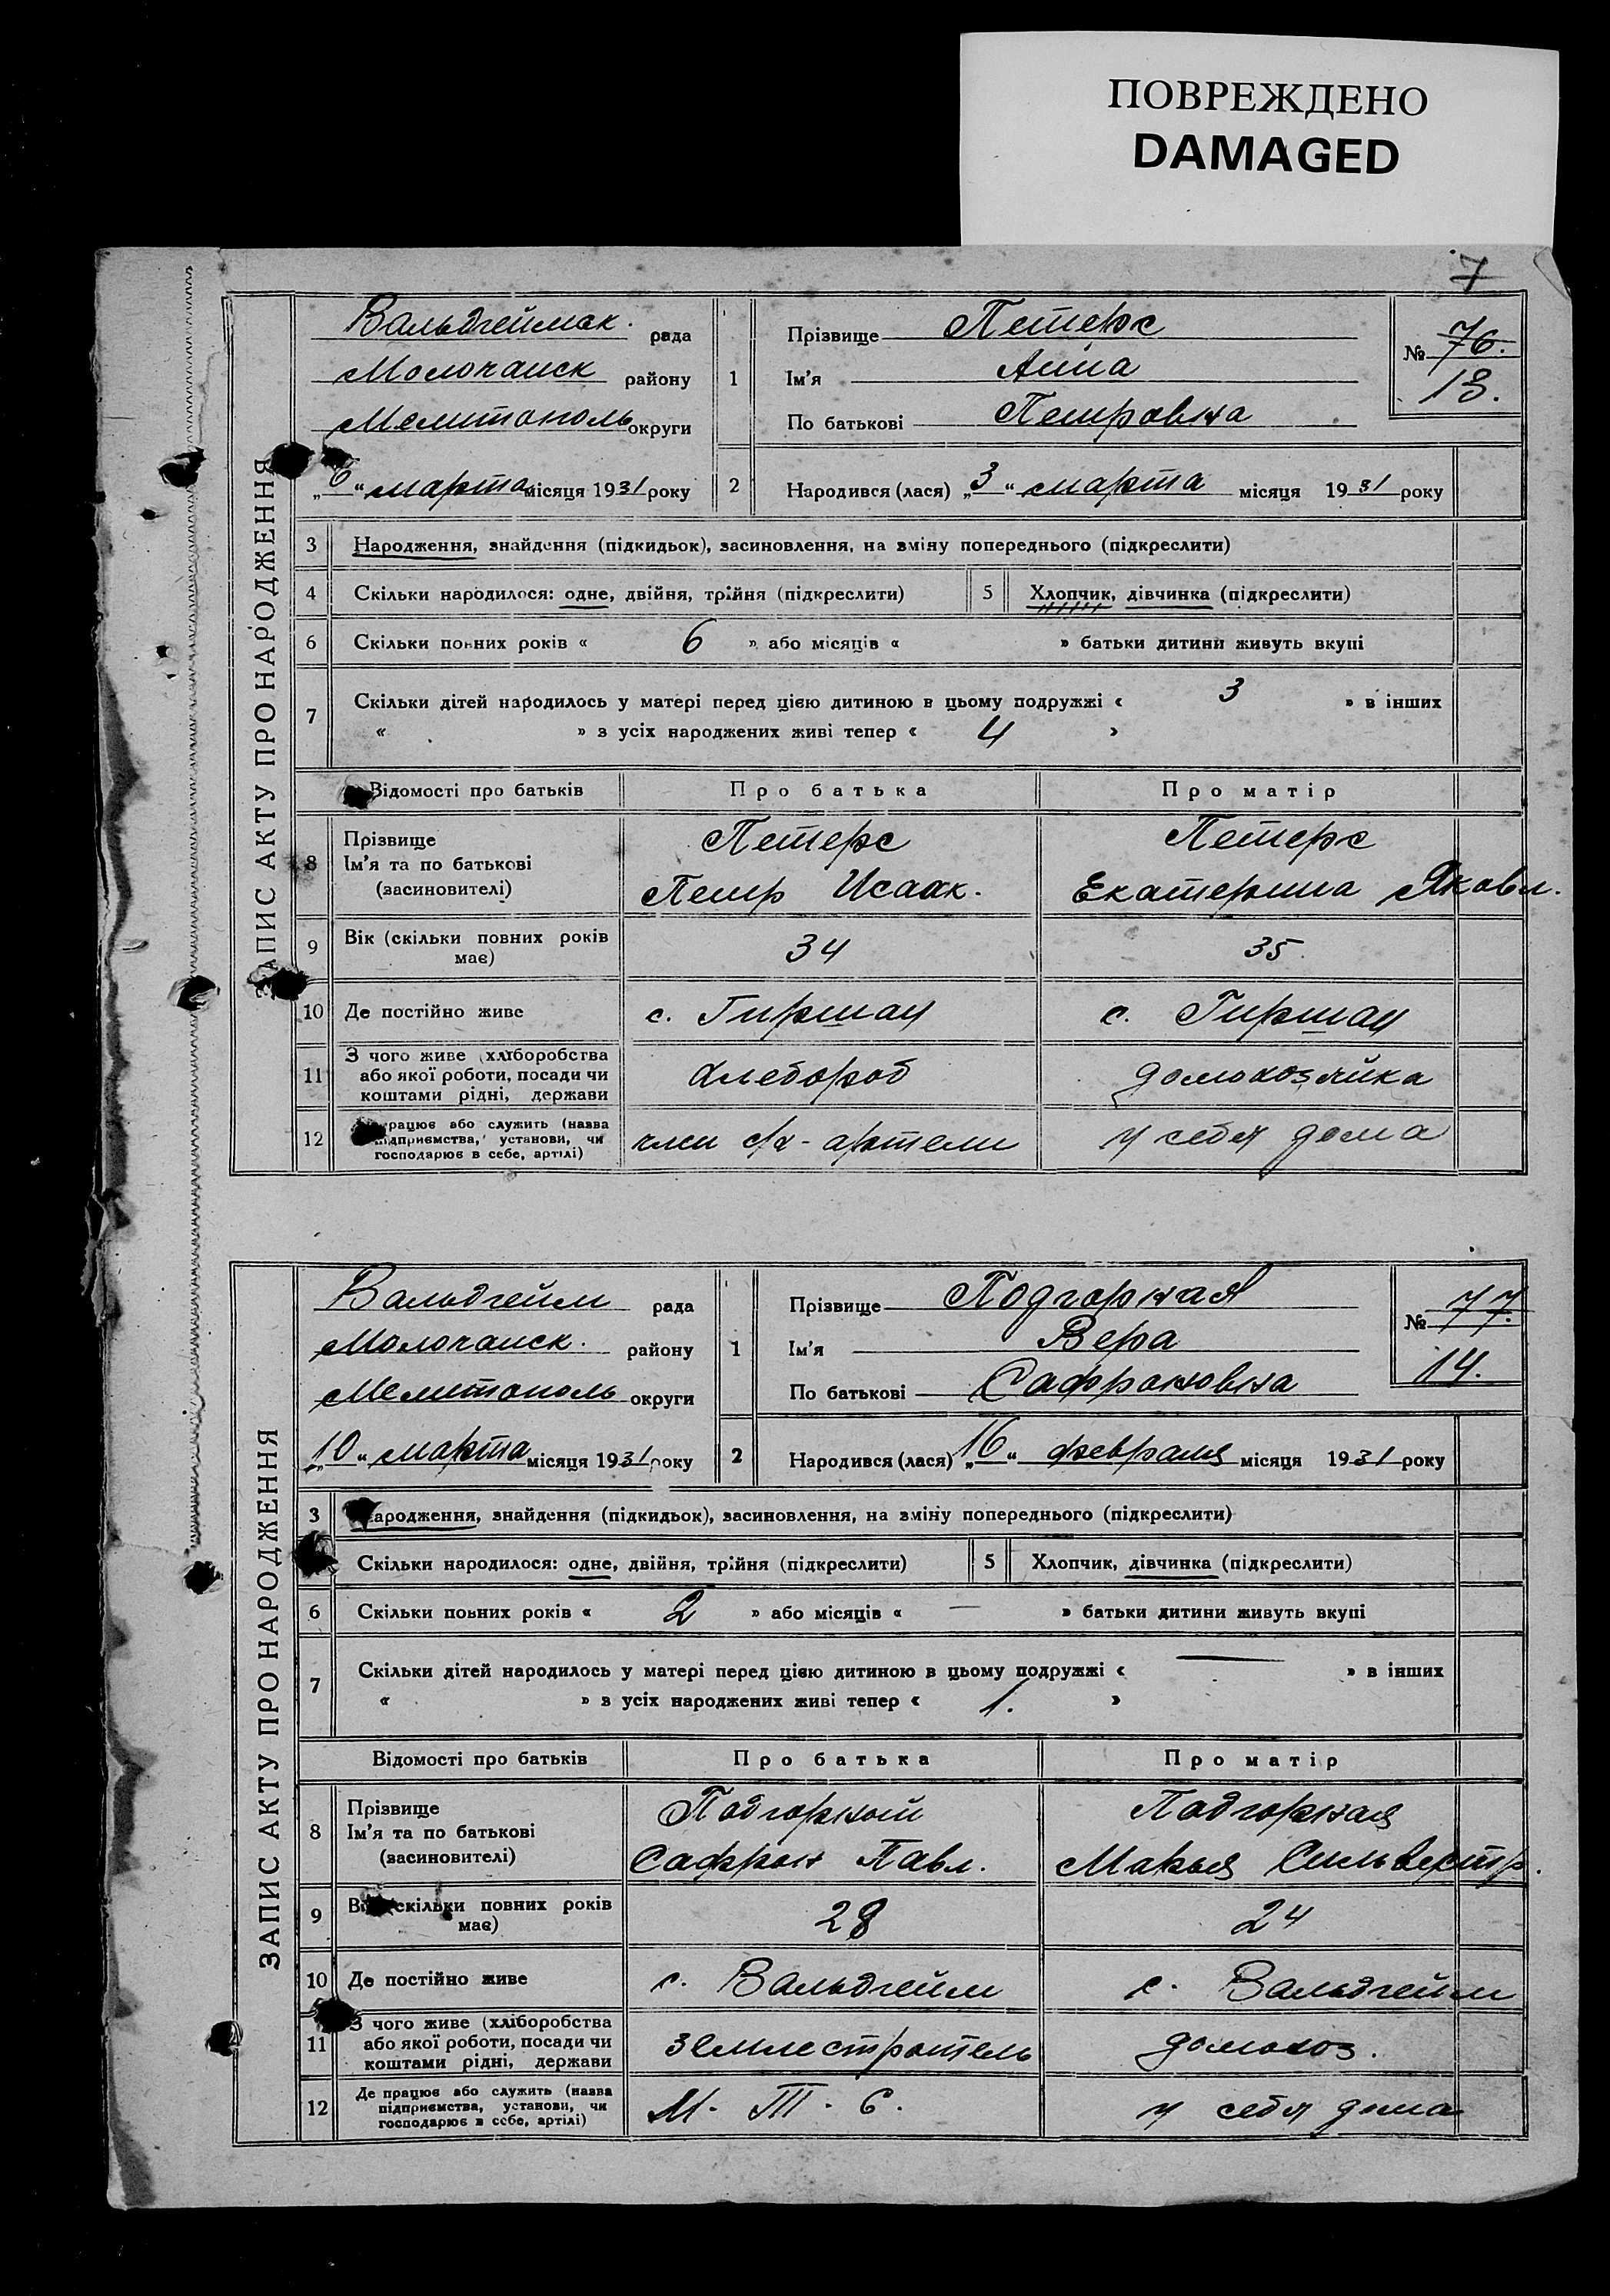 ПОВРЕЖДЕНО
DAMAGED
7
ЗАПИС АКТУ ПРО НАРОДЖЕННЯ
Вальдгеймск. рада
Молочанск району
Мелитополь округи
„6“ марта місяця 1931 року
1 Прізвище Петерс
Ім'я Анна
По батькові Петровна
№ 76.
13.
2 Народився (лася) „3“ марта місяця 1931 року
3 Народження, знайдення (підкидьок), засиновлення, на зміну попереднього (підкреслити)
4 Скільки народилося: одне, двійня, трійня (підкреслити) 5 Хлопчик, дівчинка (підкреслити)
6 Скільки повних років « 6 » або місяців « » батьки дитини живуть вкупі
7 Скільки дітей народилось у матері перед цією дитиною в цьому подружжі « 3 » в інших
« » з усіх народжених живі тепер « 4 »
Відомості про батьків Про батька Про матір
8 Прізвище Петерс Петерс
Ім'я та по батькові
(засиновителі) Петр Исаак. Екатерина Яковл.
9 Вік (скільки повних років має) 34 35
10 Де постійно живе с. Гиршау с. Гиршау
11 З чого живе (хліборобства
або якої роботи, посади чи
коштами рідні, держави хлебороб домохозяйка
12 працює або служить (назва
підприємства, установи, чи
господарює в себе, артілі) член с/х-артели у себя дома
ЗАПИС АКТУ ПРО НАРОДЖЕННЯ
Вальдгейм рада
Молочанск. району
Мелитополь округи
„10“ марта місяця 1931 року
1 Прізвище Подгорная
Ім'я Вера
По батькові Сафроновна
№ 77.
14.
2 Народився (лася) „16“ февраля місяця 1931 року
3 Народження, знайдення (підкидьок), засиновлення, на зміну попереднього (підкреслити)
Скільки народилося: одне, двійня, трійня (підкреслити) 5 Хлопчик, дівчинка (підкреслити)
6 Скільки повних років « 2 » або місяців « — » батьки дитини живуть вкупі
7 Скільки дітей народилось у матері перед цією дитиною в цьому подружжі « — » в інших
« » з усіх народжених живі тепер « 1. »
Відомості про батьків Про батька Про матір
8 Прізвище Подгорный Подгорная
Ім'я та по батькові
(засиновителі) Сафрон Павл. Марья Сильвестр.
9 Вік (скільки повних років має) 28 24
10 Де постійно живе с. Вальдгейм с. Вальдгейм
11 З чого живе (хліборобства
або якої роботи, посади чи
коштами рідні, держави землестроитель домохоз.
12 Де працює або служить (назва
підприємства, установи, чи
господарює в себе, артілі) М. Т. С. у себя дома